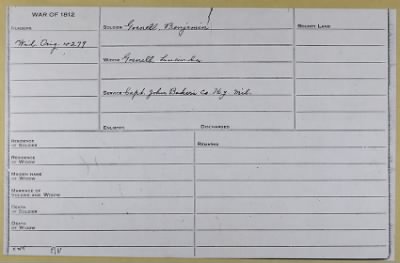 WAR OF 1812
NUMBERS
SOLDIER Gorrell Benjamin
BOUNTY LAND
Wid. Orig. 4279
WIDOW Gorrell
SERVICE Capt. John Bakers Co. Ky. Mil.
ENLISTED DISCHARGED
RESIDENCE OF SOLDIER
REMARKS
RESIDENCE OF WIDOW
MAIDEN NAME OF WIDOW
MARRIAGE OF SOLDIER AND WIDOW
DEATH OF SOLDIER
DEATH OF WIDOW